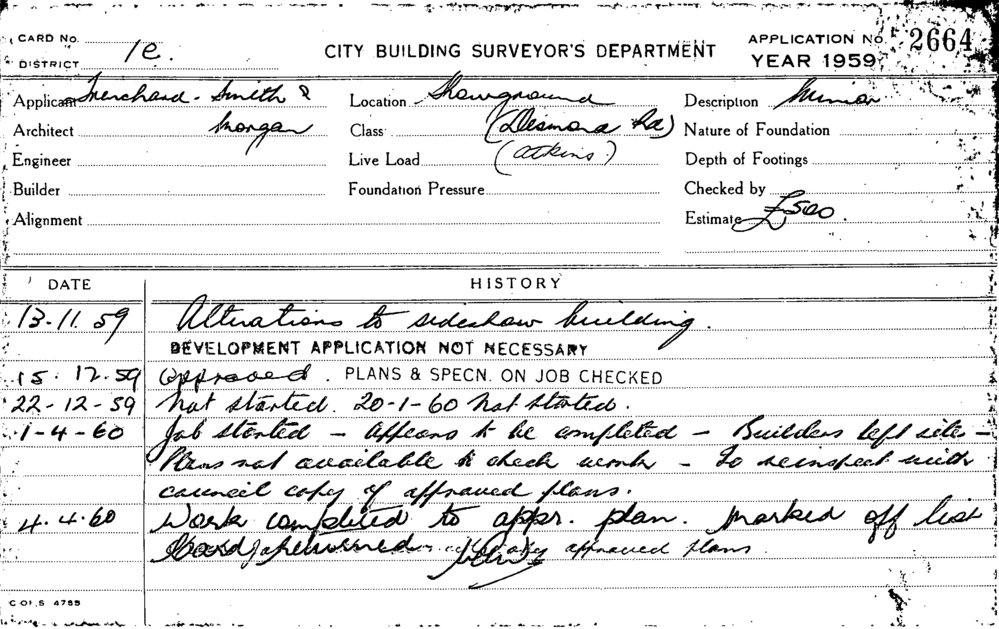 CARD No.
DISTRICT 1e.
CITY BUILDING SURVEYOR'S DEPARTMENT
APPLICATION No. 2664
YEAR 1959
Applicant Trenchard-Smith &
Location Showground
Description Minor
Architect Morgan
Class (Desmond Rd)
Nature of Foundation
Engineer
Live Load (Atkins)
Depth of Footings
Builder
Foundation Pressure
Checked by
Alignment
Estimate £500.
DATE
HISTORY
13.11.59 Alterations to sideshow building.
DEVELOPMENT APPLICATION NOT NECESSARY
15.12.59 approved. PLANS & SPECN. ON JOB CHECKED
22-12-59 Not started. 20-1-60 Not started.
1-4-60 Job started - appears to be completed - Builders left site -
Plans not available to check work - To reinspect with
council copy of approved plans.
4.4.60 Work completed to appr. plan. Marked off list
approved plans.
C of S 4755